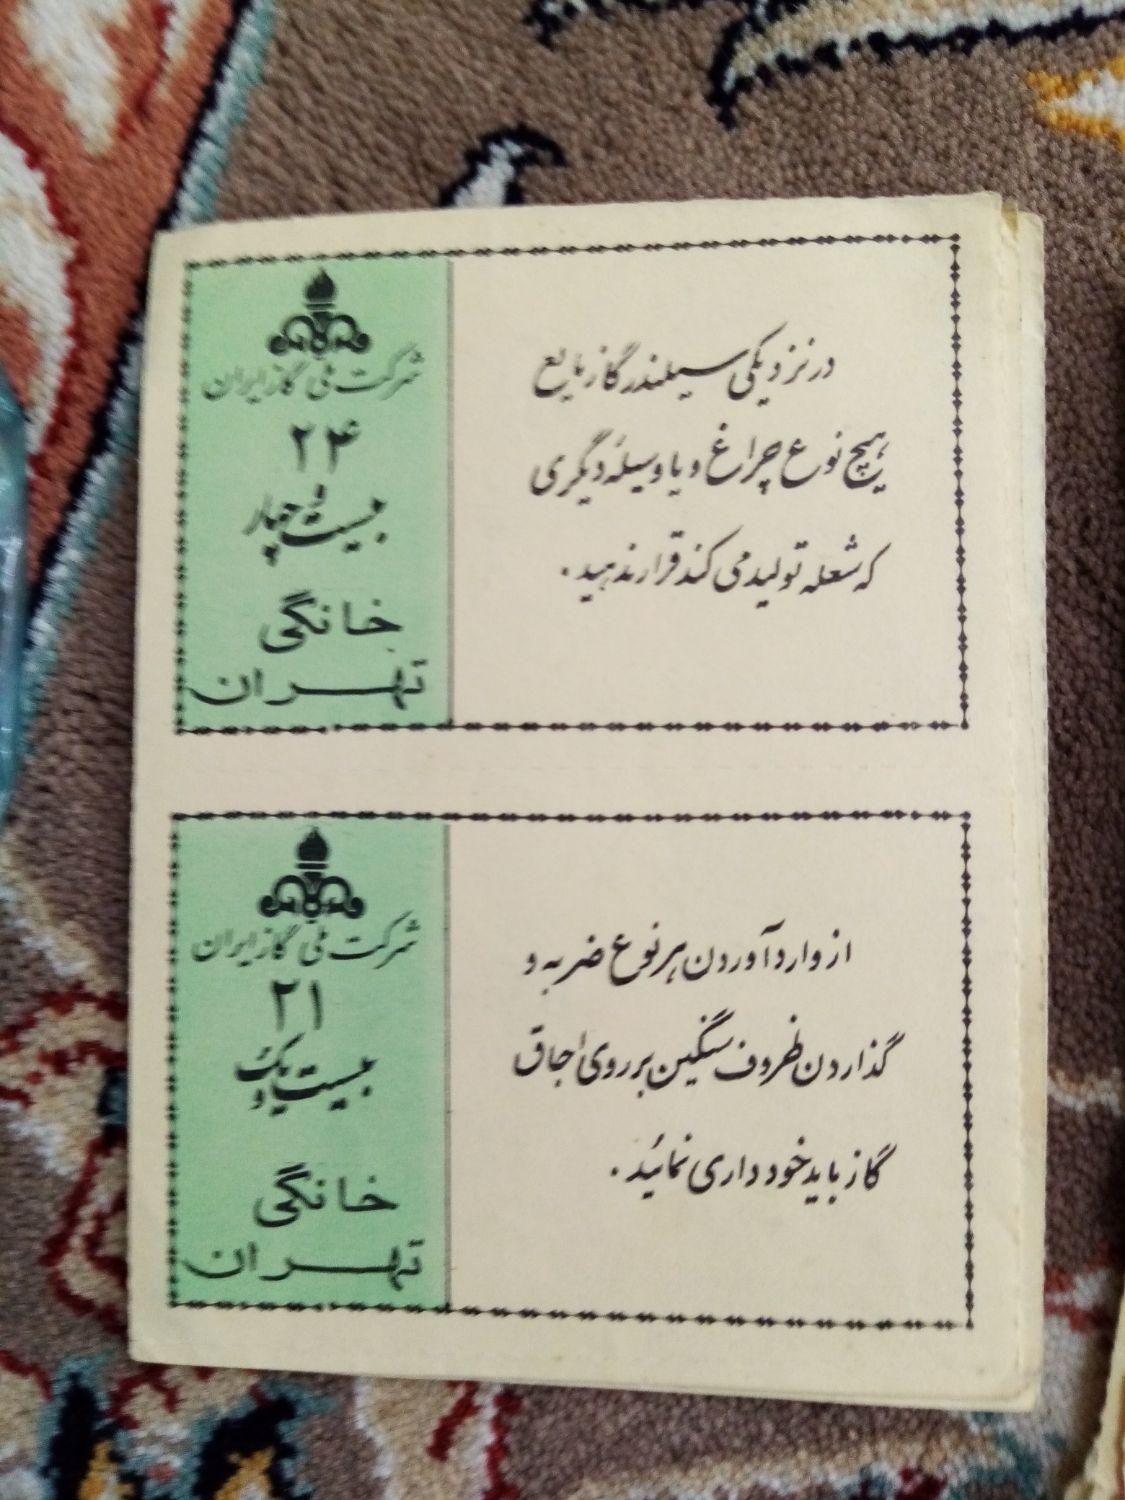 در نزدیکی سیلندر گاز مایع
هیچ نوع چراغ و یا وسیله دیگری
که شعله تولید می کند قرار ندهید.
شرکت ملی گاز ایران
۲۴
بیست و چهار
خانگی
تهران
از وارد آوردن هر نوع ضربه و
گذاردن ظروف سنگین بر روی اجاق
گاز باید خودداری نمائید.
شرکت ملی گاز ایران
۲۱
بیست و یک
خانگی
تهران